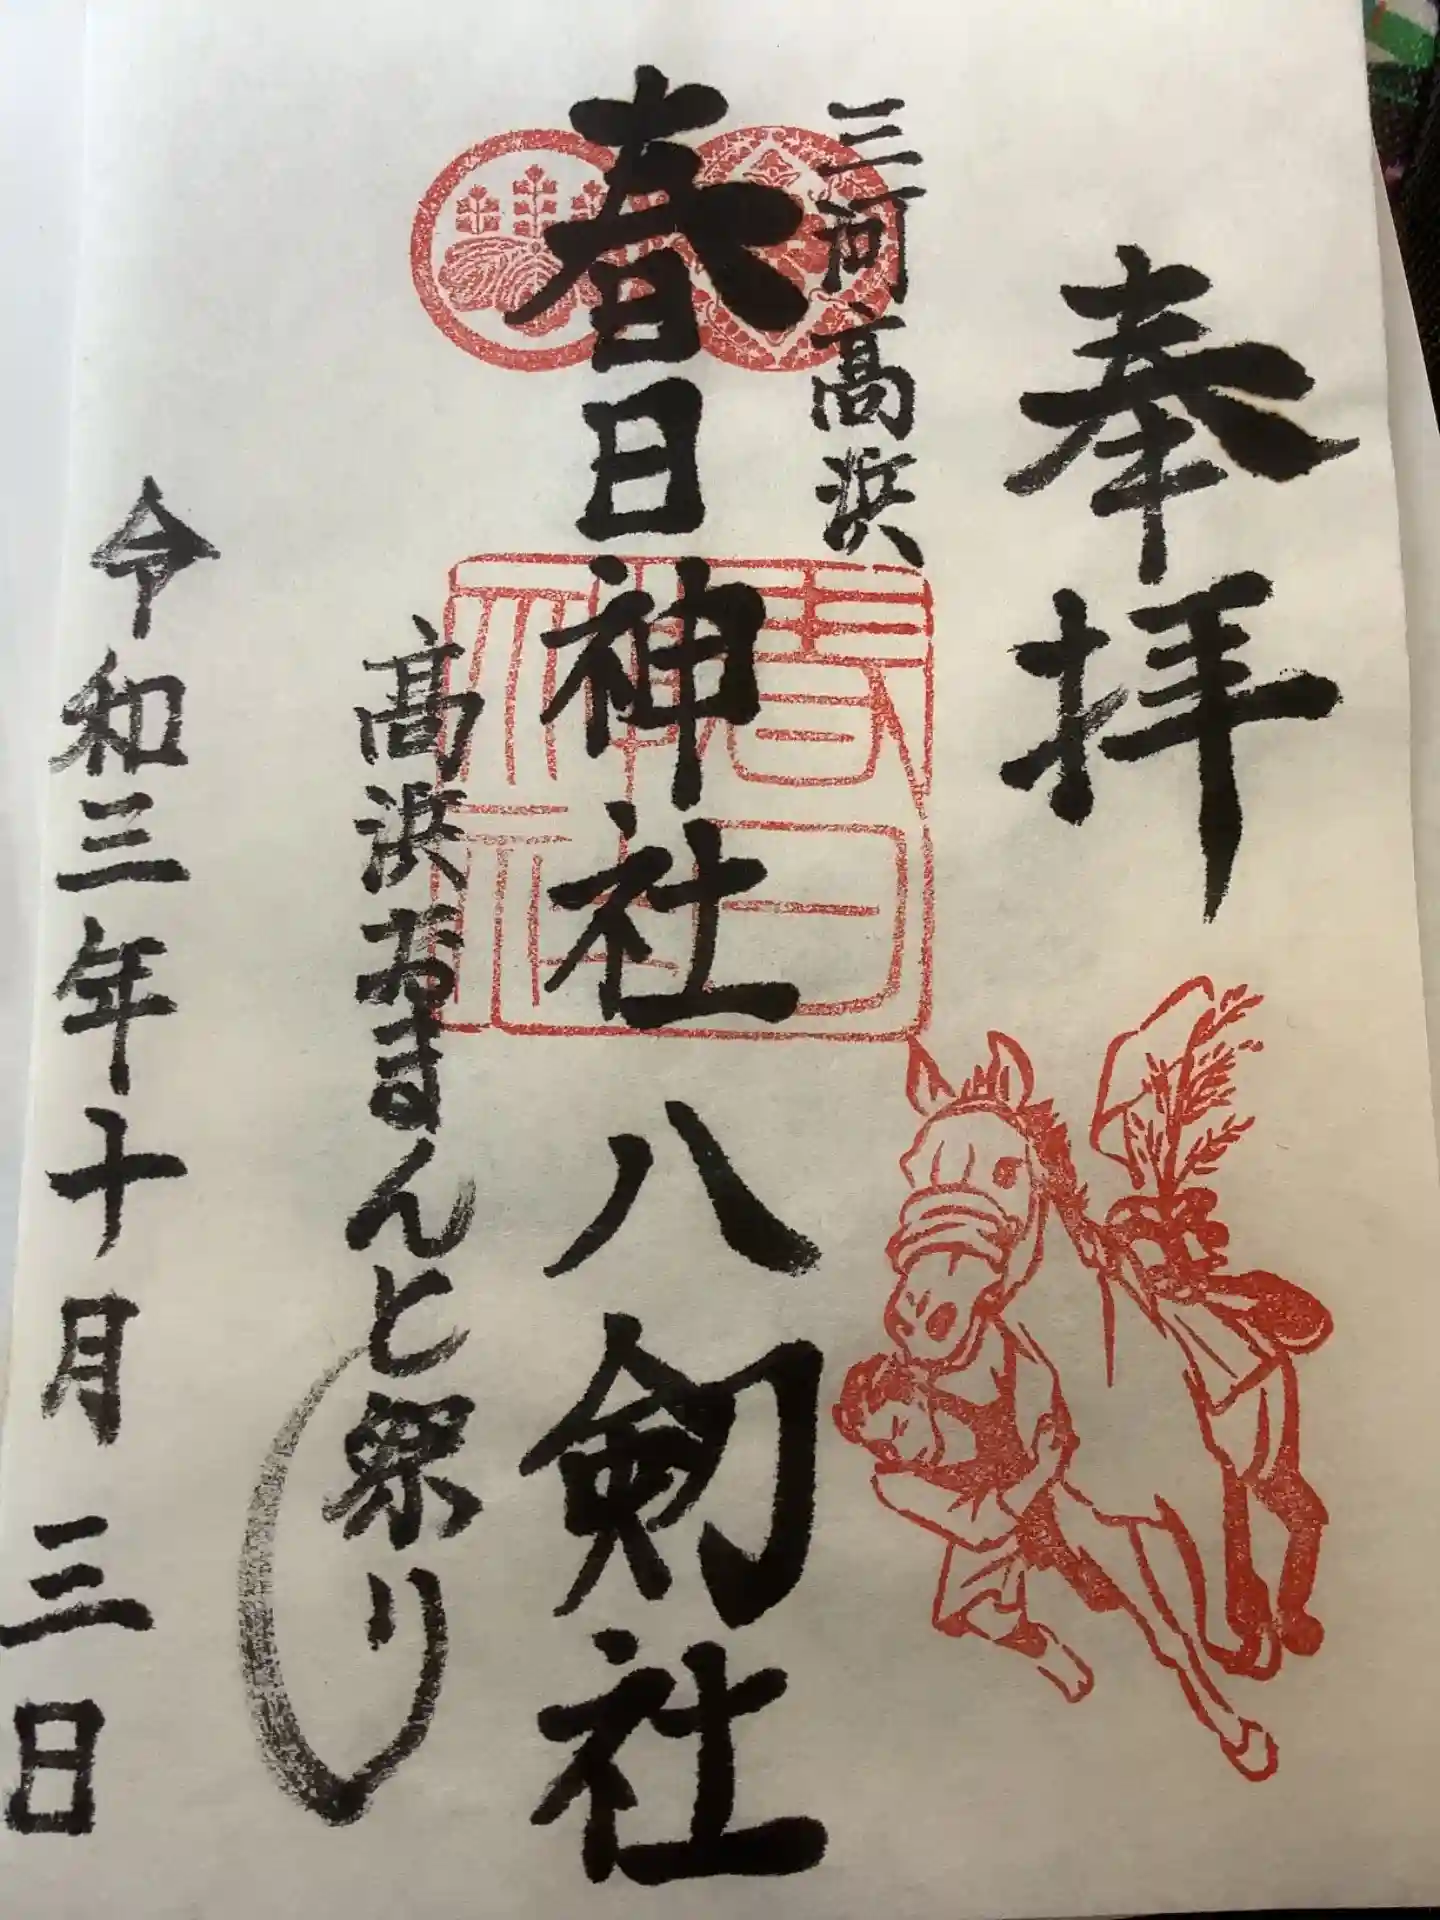 奉拝
三河高浜
春日神社八剣社
春日神社
高浜おまんと祭り
令和三年十月三日